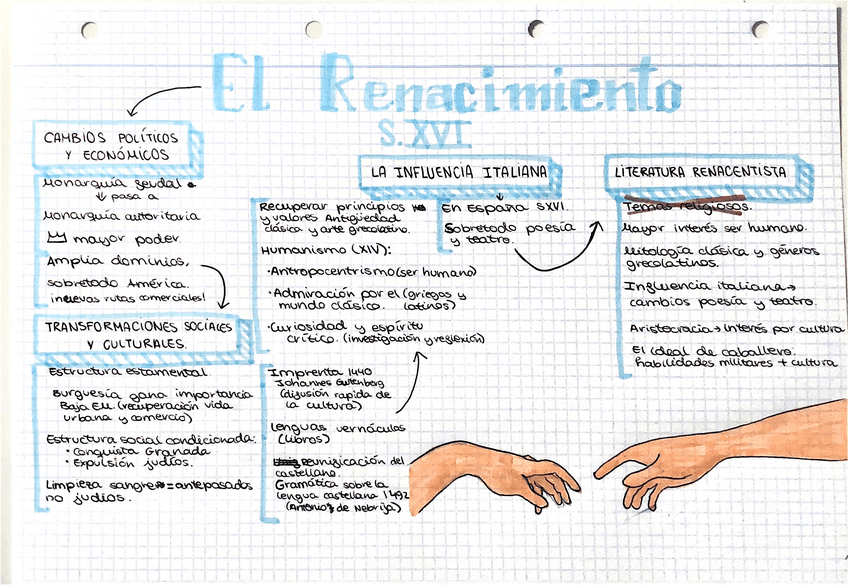 El Renacimiento
S.XVI
CAMBIOS POLÍTICOS
Y ECONÓMICOS
Monarquía feudal
pasa a
Monarquía autoritaria
mayor poder.
Amplia dominios,
sobretodo América.
¡nuevas rutas comerciales!
TRANSFORMACIONES SOCIALES
Y CULTURALES.
Estructura estamental.
Burguesía gana importancia
Baja E.M. (recuperación vida
urbana y comercio)
Estructura social condicionada:
· Conquista Granada
· Expulsión judíos.
Limpieza sangre = antepasados
no judíos.
LA INFLUENCIA ITALIANA
Recuperar principios
y valores Antigüedad
clásica y arte grecolatino.
Humanismo (XIV):
·Antropocentrismo (ser humano)
·Admiración por el (griegos y
mundo clásico. latinos)
·Curiosidad y espíritu
crítico. (investigación y reflexión)
Imprenta 1440
Johannes Gutenberg
(difusión rapida de
la cultura)
Lenguas vernáculas
(libros)
reunificación del
castellano.
Gramática sobre la
lengua castellana 1492
(Antonio de Nebrija)
En España SXVI.
Sobretodo poesía
y teatro.
LITERATURA RENACENTISTA
Temas religiosos.
Mayor interés ser humano.
Mitología clásica y géneros
grecolatinos.
Influencia italiana→
cambios poesía y teatro.
Aristocracia→interés por cultura
El ideal de caballero:
habilidades militares + cultura